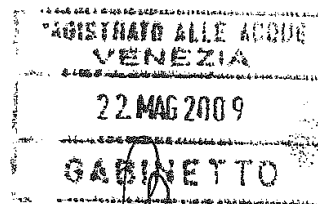 MAGISTRATO ALLE ACQUE
VENEZIA
22 MAG 2009
GABINETTO